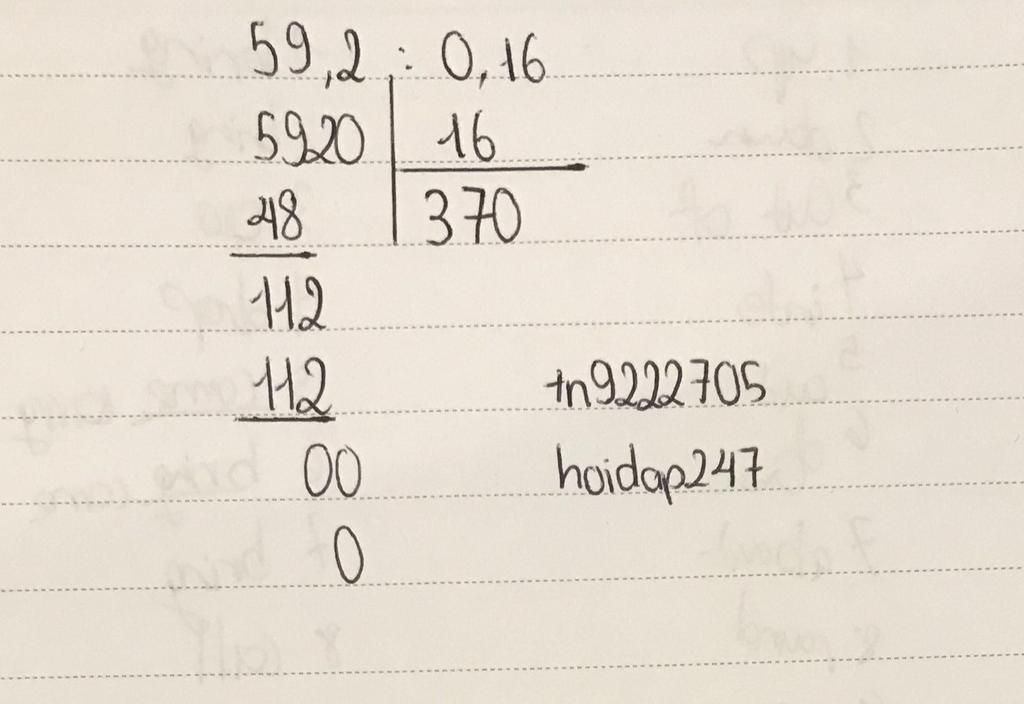 59,2 : 0,16
5920 16
48 370
112
112 tn9222705
00 hoidap247
0